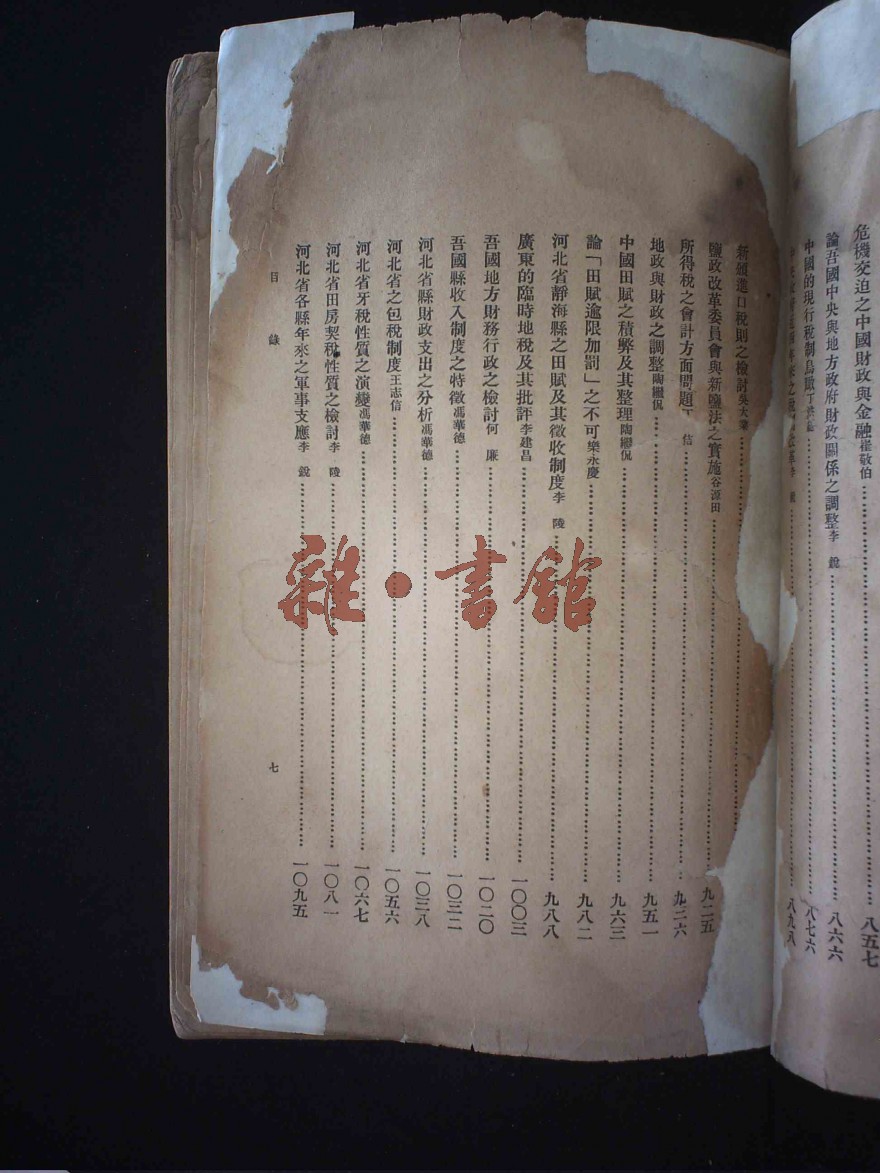 危機交迫之中國財政與金融崔敬伯……八五七
論吾國中央與地方政府財政關係之調整李 銳……八六六
中國的現行稅制……八七六
……八九八
新頒進口稅則之檢討吳大業……
鹽政改革委員會與新鹽法之實施谷源田……九二五
所得稅之會計方面問題丁 佶……九二六
地政與財政之調整陶繼侃……九五一
中國田賦之積弊及其整理陶繼侃……九六三
論「田賦逾限加罰」之不可樂永慶……九八二
河北省靜海縣之田賦及其徵收制度李 陵……九八八
廣東的臨時地稅及其批評李建昌……一〇〇三
吾國地方財務行政之檢討何 廉……一〇二〇
吾國縣收入制度之特徵馮華德……一〇三二
河北省縣財政支出之分析馮華德……一〇三八
河北省之包稅制度王志信……一〇五六
河北省牙稅性質之演變馮華德……一〇六七
河北省田房契稅性質之檢討李 陵……一〇八一
河北省各縣年來之軍事支應李 銳……一〇九五
目 錄
七
雜·書館